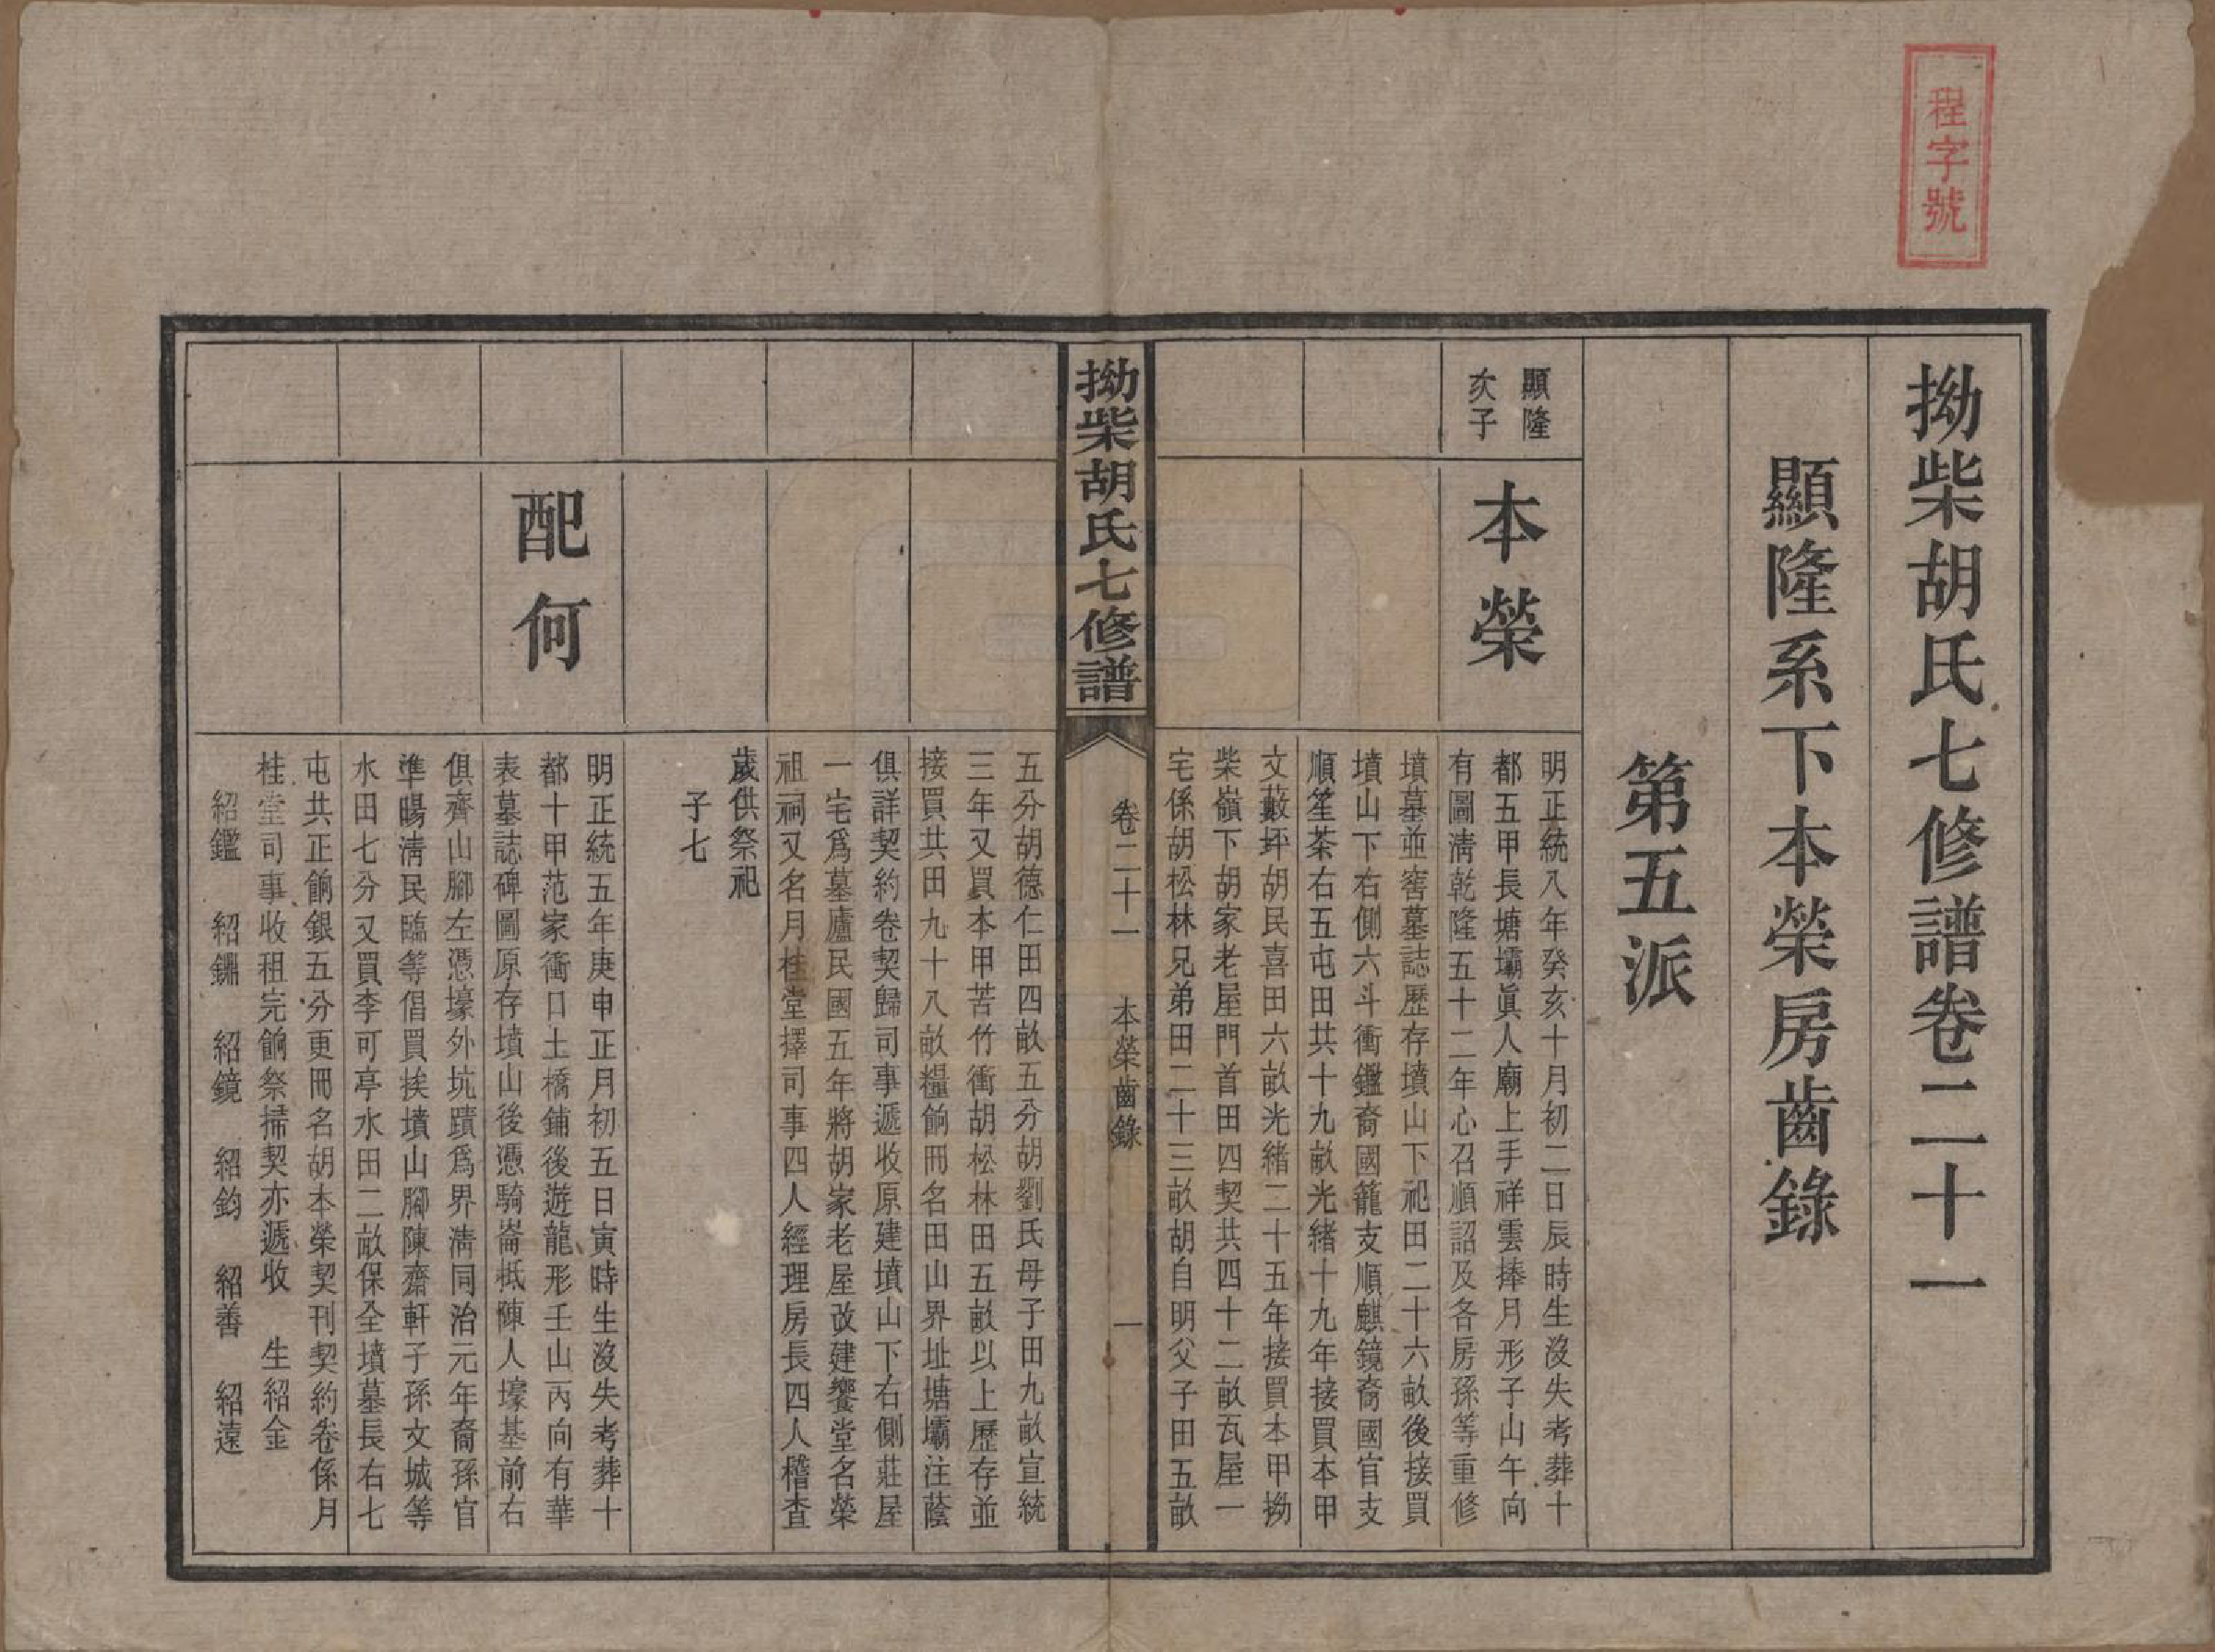 程字號
拗柴胡氏七修譜卷二十一
顯隆系下本榮房齒錄
第五派
顯隆
次子
本榮
明正統八年癸亥十月初二日辰時生沒失考葬十
都五甲長塘壩眞人廟上手祥雲捧月形子山午向
有圖清乾隆五十二年心召順詔及各房孫等重修
墳墓並窖墓誌歷存墳山下祀田二十六畝後接買
墳山下右側六斗衝鑑裔國籠支順麒鏡裔國官支
順笙茶右五屯田共十九畝光緒十九年接買本甲
文藪坪胡民喜田六畝光緒二十五年接買本甲拗
柴嶺下胡家老屋門首田四契共四十二畝瓦屋一
宅係胡松林兄弟田二十三畝胡自明父子田五畝
拗柴胡氏七修譜
卷二十一
本榮齒錄
一
五分胡德仁田四畝五分胡劉氏母子田九畝宣統
三年又買本甲苦竹衝胡松林田五畝以上歷存並
接買共田九十八畝糧餉冊名田山界址塘壩注蔭
俱詳契約卷契歸司事遞收原建墳山下右側莊屋
一宅爲墓廬民國五年將胡家老屋改建饗堂名榮
祖祠又名月桂堂擇司事四人經理房長四人稽查
歲供祭祀
子七
配何
明正統五年庚申正月初五日寅時生沒失考葬十
都十甲范家衝口土橋鋪後遊龍形壬山丙向有華
表墓誌碑圖原存墳山後憑騎崙抵陳人壕基前右
俱齊山腳左憑壕外坑蹟爲界清同治元年裔孫官
準暘清民臨等倡買挨墳山腳陳齋軒子孫文城等
水田七分又買李可亭水田二畝保全墳墓長右七
屯共正餉銀五分更冊名胡本榮契刊契約卷係月
桂堂司事收租完餉祭掃契亦遞收 生紹金
紹鑑 紹鏽 紹鏡 紹鈞 紹善 紹遠